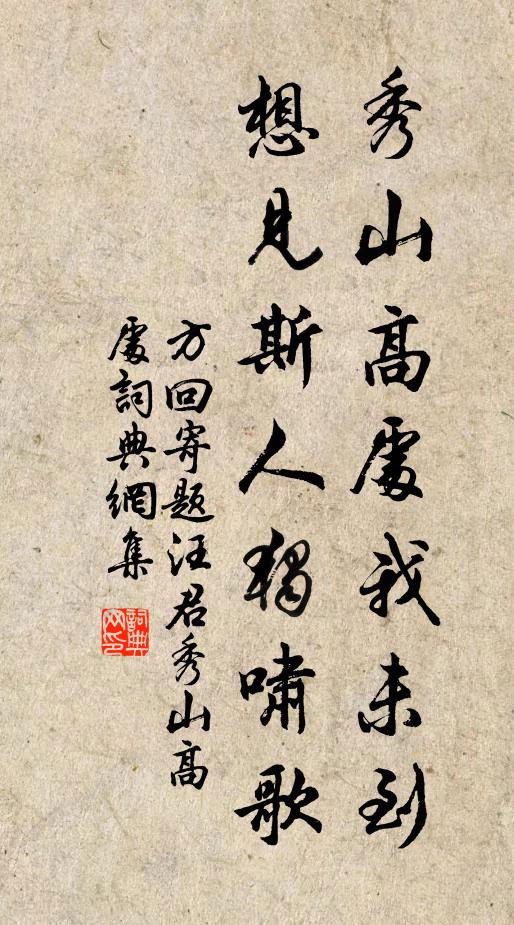 秀山高處我未到
想見斯人獨嘯歌
方回寄題汪君秀山高
處詞典網集
詞典
网印